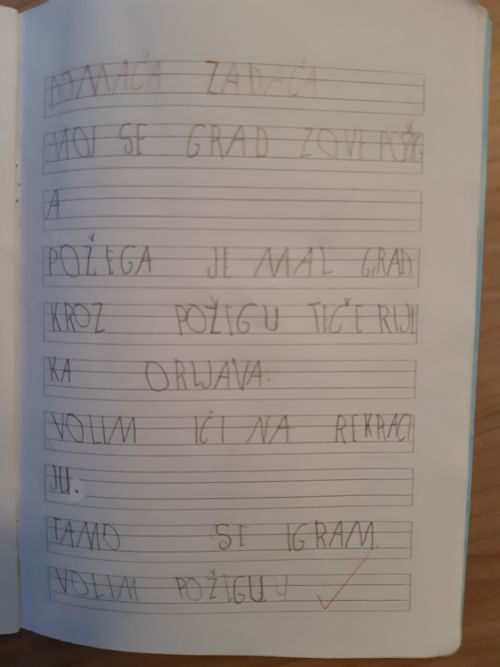 DOMAĆA ZADAĆA
MOJ SE GRAD ZOVE POŽEG
A
POŽEGA JE MAL GRAD.
KROZ POŽEGU TEČE RIJE
KA ORLJAVA.
VOLIM IĆI NA REKRACI
JU.
TAMO SE IGRAM.
VOLIM POŽEGU.